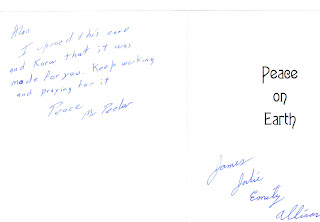 Alan
I opened this card
and knew that it was
made for you. Keep working
and praying for it
Peace
Peace
on
Earth
James
Julie
Emily
Allison